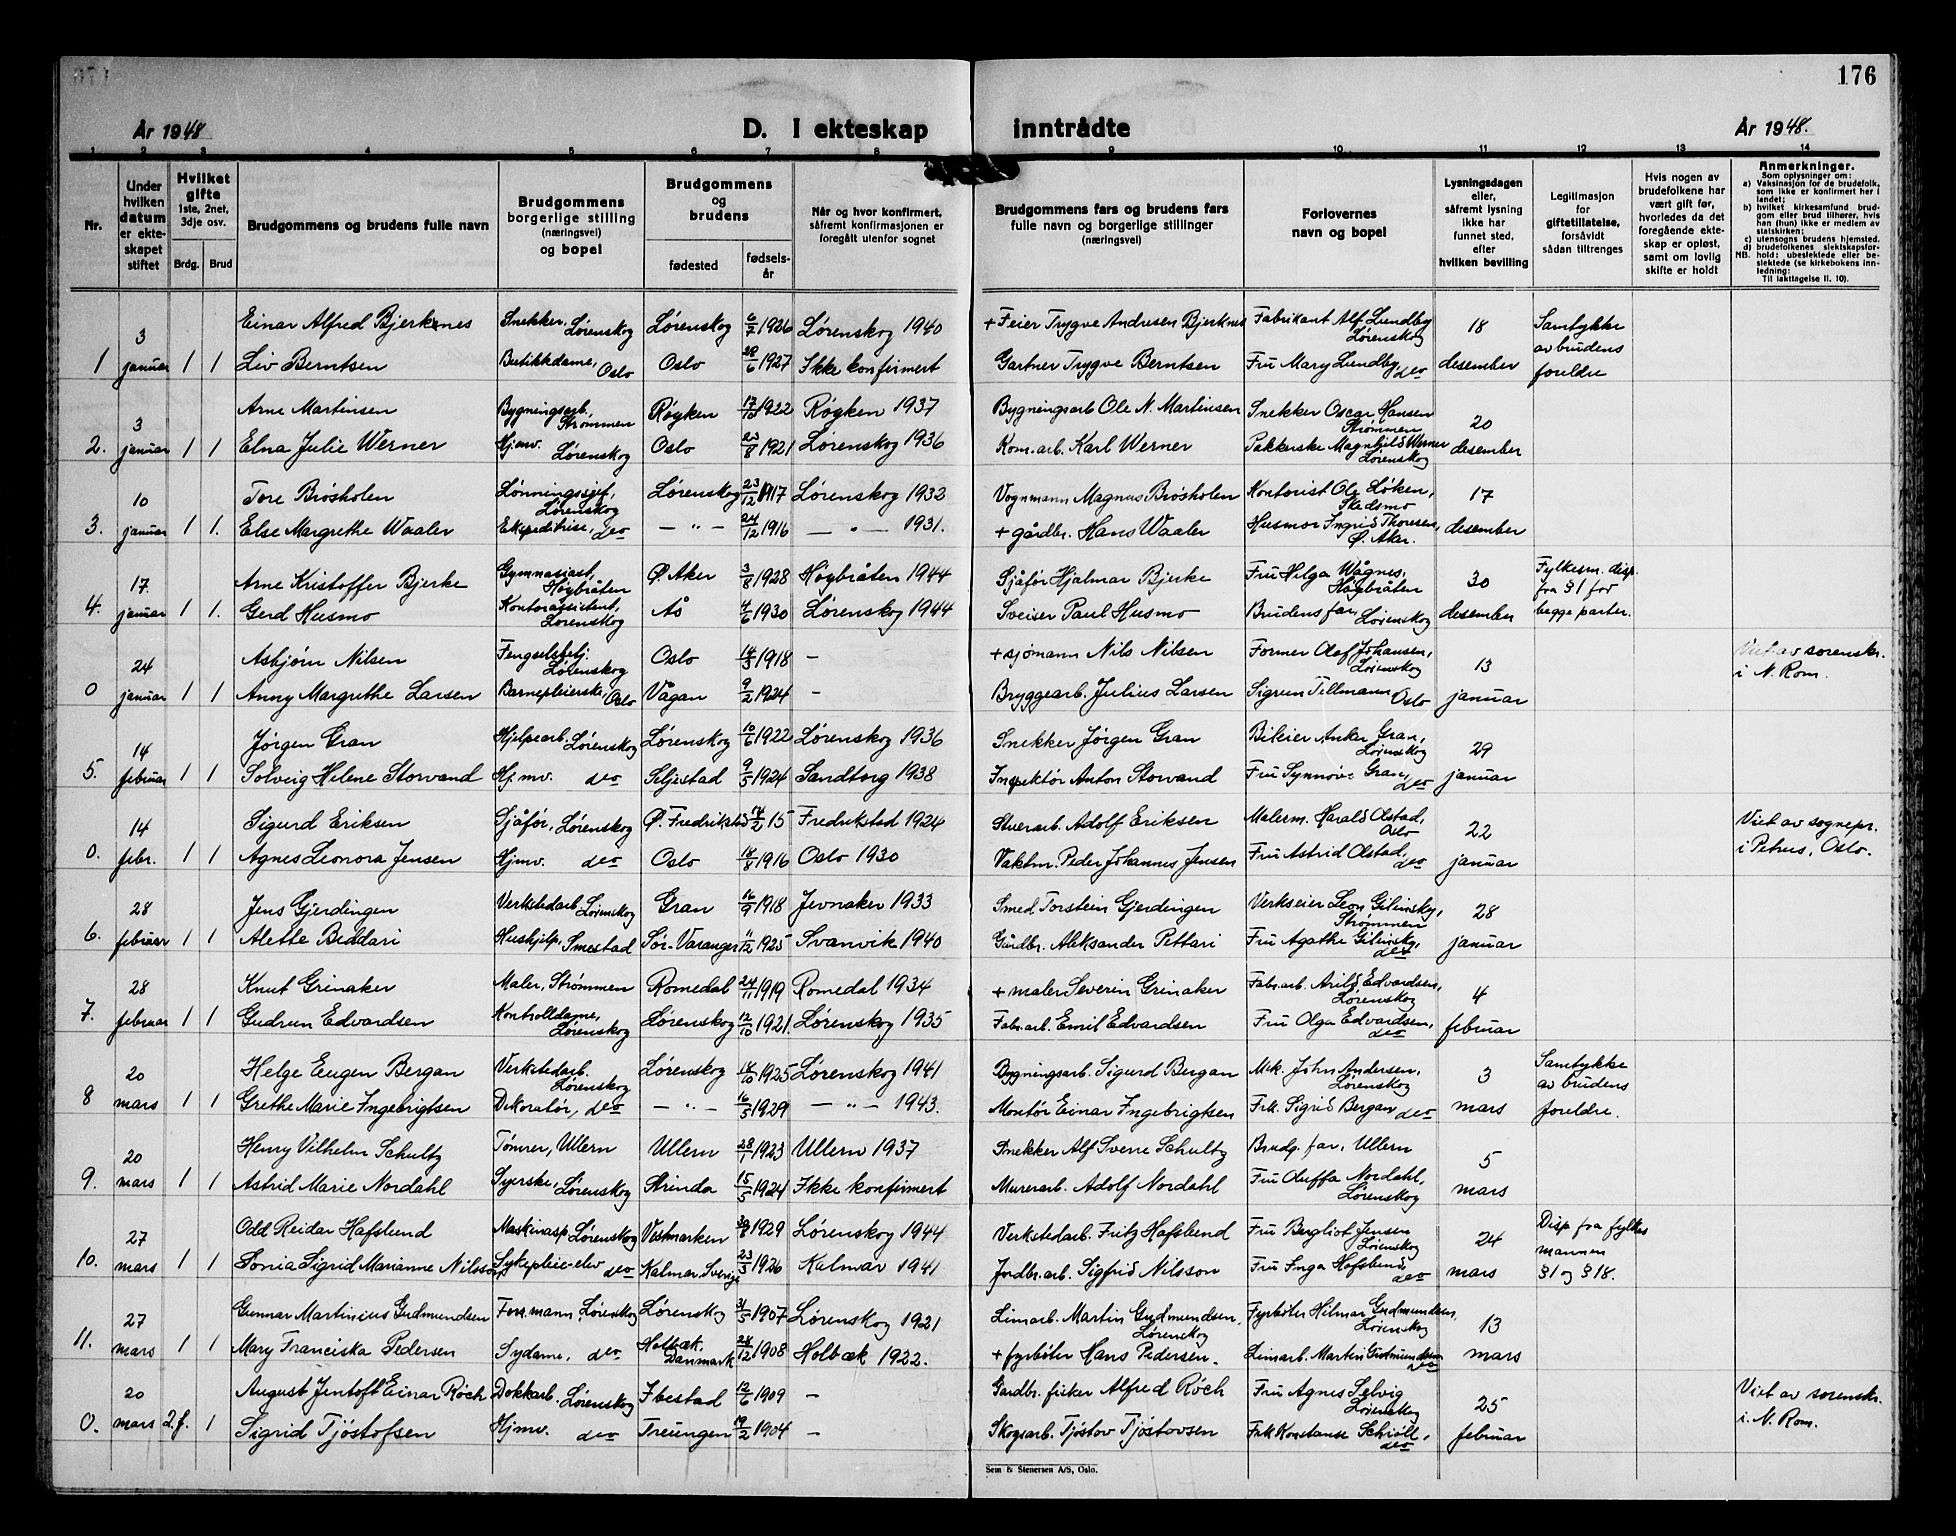 176
År 1948
D. I ekteskap inntrådte
År 1948.
1 2 3 4 5 6 7 8 9 10 11 12 13 14
Nr.
Under hvilken datum er ekteskapet stiftet
Hvilket gifte 1ste, 2net, 3dje osv.
Brdg. Brud
Brudgommens og brudens fulle navn
Brudgommens borgerlige stilling (næringsvei) og bopel
Brudgommens og brudens
fødested
fødselsår
Når og hvor konfirmert, såfremt konfirmasjonen er foregått utenfor sognet
Brudgommens fars og brudens fars fulle navn og borgerlige stillinger (næringsvei)
Forlovernes navn og bopel
Lysningsdagen eller, såfremt lysning ikke har funnet sted, efter hvilken bevilling
Legitimasjon for giftetillatelse, forsåvidt sådan tiltrenges
Hvis nogen av brudefolkene har vært gift før, hvorledes da det foregående ekteskap er opløst, samt om lovlig skifte er holdt
Anmerkninger.
Som oplysninger om:
a) Vaksinasjon for de brudefolk, som ikke er konfirmert her i landet;
b) hvilket kirkesamfund brudgom eller brud tilhører, hvis han (hun) ikke er medlem av statskirken;
c) utensogns brudens hjemsted.
d) brudefolkenes slektskapsforhold: ubeslektede eller beslektede (se kirkebokens innledning:
NB.
Til iakttagelse II. 10).
3 Einar Alfred Bjerknes Snekker, Lørenskog Lørenskog 6/7 1926 Lørenskog 1940 + Feier Trygve Andresen Bjerknes Fabrikant Alf Lundby Lørenskog 18 Samtykke av brudens
1 januar 1 1 Liv Berntsen Butikkdame, Oslo Oslo 28/6 1927 Ikke konfirmert Gartner Trygve Berntsen Fru Mary Lundby, do desember foreldre
3 Arne Martinsen Bygningsarb, Strømmen Røyken 1922 Røyken 1937 Bygningsarb Ole N. Martinsen Snekker Oscar Hansen Strømmen 20
2. januar 1 1 Elna Julie Werner Hjmv. Lørenskog Oslo 23/8 1921 Lørenskog 1936 Kom.arb. Karl Werner Pakkerske Magnhild Werner Lørenskog desember
10 Tore Brøsholen Lønningssjef, Lørenskog Lørenskog 23/12 1917 Lørenskog 1932 Vognmann Magnus Brøsholen Kontorist Ole Løken, Skedsmo 17
3. januar 1 1. Else Margrethe Waaler Ekspeditrise, do — " — 24/12 1916 — " — 1931. + gårdbr. Hans Waaler Husmor Ingrid Thoresen, Ø. Aker. desember
17 Arne Kristoffer Bjerke Gymnasiast, Høybråten Ø. Aker 3/8 1928 Høybråten 1944 Sjåfør Hjalmar Bjerke Fru Helga Wågnes, Høybråten 30 Fylkesm. disp. fra § 1 for
4. januar 1 1. Gerd Husmo Kontorassistent, Lørenskog Ås 1930 Lørenskog 1944 Sveiser Paul Husmo Brudens far, Lørenskog desember begge parter.
24 Asbjørn Nilsen Fengselsbetj. Lørenskog Oslo 1918 — + sjømann Nils Nilsen Former Olaf Johansen, Lørenskog 13 Viet av sorenskr.
0 januar 1 1 Anny Margrethe Larsen Barnepleierske, Oslo Vågan 9/2 1924 — Bryggearb. Julius Larsen Sigrun Tillmann Oslo januar i N. Rom.
14 Jørgen Gran Hjelpearb. Lørenskog Lørenskog 10/6 1922 Lørenskog 1936 Snekker Jørgen Gran Bileier Anker Gran, Lørenskog 29
5. februar 1 1 Solveig Helene Storvand Hj.mv. do 9/5 1924 Sandtorg 1938 Inspektør Anton Storvand Fru Synnøve Gran, do januar
14 Sigurd Eriksen Sjåfør, Lørenskog Ø. Fredrikstad 14/2 15 Fredrikstad 1924 Stuerarb. Adolf Eriksen Malerm. Harald Olstad, Oslo 22 Viet av sognepr.
0. febr. 1 1 Agnes Leonora Jensen Hjmv. do Oslo 1916 Oslo 1930 Vaktm. Peder Johannes Jensen Fru Astrid Olstad, do januar i Petrus, Oslo.
28 Jens Gjerdingen Verkstedarb. Lørenskog Gran 16/9 1918 Jevnaker 1933 Smed Torstein Gjerdingen Verkseier Leon Gilinsky, Strømmen 28
6. februar 1 1 Alette Biddari Hushjelp, Smestad Sør-Varanger 11/12 1925 Svanvik 1940 Gårdbr. Aleksander Pettari Fru Agathe Gilinsky, do januar
28 Knut Grinaker Maler, Strømmen Romedal 24/11 1919 Romedal 1934 + maler Severin Grinaker Fabr.arb. Arild Edvardsen, Lørenskog 4
7. februar 1 1 Gudrun Edvardsen Kontrolldame, Lørenskog Lørenskog 12/10 1921 Lørenskog 1935 Fabr.arb. Emil Edvardsen Fru Olga Edvardsen, do februar
20 Helge Eugen Bergan Verkstedarb. Lørenskog Lørenskog 14/10 1925 Lørenskog 1941 Bygningsarb. Sigurd Bergan Mek. John Andersen, Lørenskog 3 Samtykke av brudens
8 mars 1 1 Grethe Marie Ingebrigtsen Dekoratør, do — " — 16/5 1929 — " — 1943. Montør Einar Ingebrigtsen Frk. Sigrid Bergan do mars foreldre.
20 Henry Vilhelm Schultz Tømrer, Ullern Ullern 28/1 1923 Ullern 1937 Snekker Alf Sverre Schultz Brudg. far, Ullern 5
9. mars 1 1 Astrid Marie Nordahl Syerske, Lørenskog Strinda 15/5 1924 Ikke konfirmert Murerarb. Adolf Nordahl Fru Oluffa Nordahl, Lørenskog mars
27 Odd Reidar Hafslund Maskinasp. Lørenskog Vestmarken 30/8 1929 Lørenskog 1944 Verkstedarb. Fritz Hafslund Fru Bergliot Jensen Lørenskog 24 Disp fra fylkesmannen
10. mars 1 1 Sonia Sigrid Marianne Nilsson Sykepleie-elev do Kalmar, Sverige 23/3 1926 Kalmar 1941 Jordbr.arb. Sigfrid Nilsson Fru Inga Hafslund do mars § 1 og § 18.
27 Gunnar Martinius Gudmundsen Formann, Lørenskog Lørenskog 31/5 1907 Lørenskog 1921 Limarb. Martin Gudmundsen, Lørenskog Fyrbøter Hilmar Gudmundsen, Lørenskog 13
11. mars 1 1 Mary Franciska Pedersen Sydame, do Holbæk, Danmark 28/12 1908 Holbæk 1922. + fyrbøter Hans Pedersen. Limarb. Martin Gudmundsen do mars
20 August Jentoft Einar Röch Dokkarb. Lørenskog Ibestad 12/6 1909 — Gardbr. fisker Alfred Röch Fru Agnes Selvig Lørenskog 25 Viet av sorenskr.
0. mars 2.f. 1 Sigrid Tjøstofsen Hjmv. do Treungen 19/2 1904 — Skogsarb. Tjøstov Tjøstovsen Frk Konstanse Schiøll, do februar i N. Rom.
Sem & Stenersen A/S, Oslo.